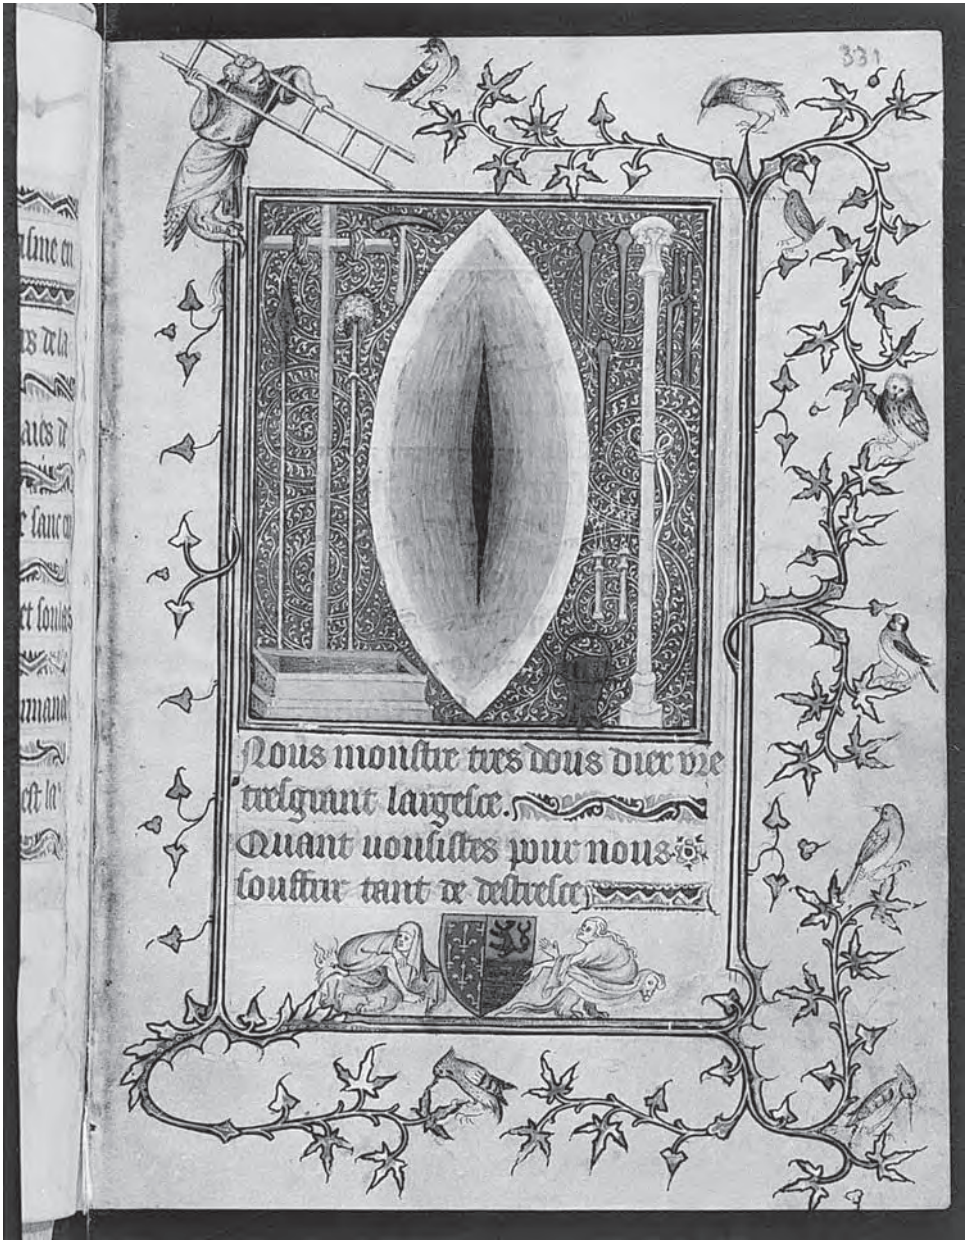 de la
et soulas
est la
331
Nous monstre tres dous diex vre
tresgrant largesce.
Quant uousistes pour nous
souffrir tant de destresce